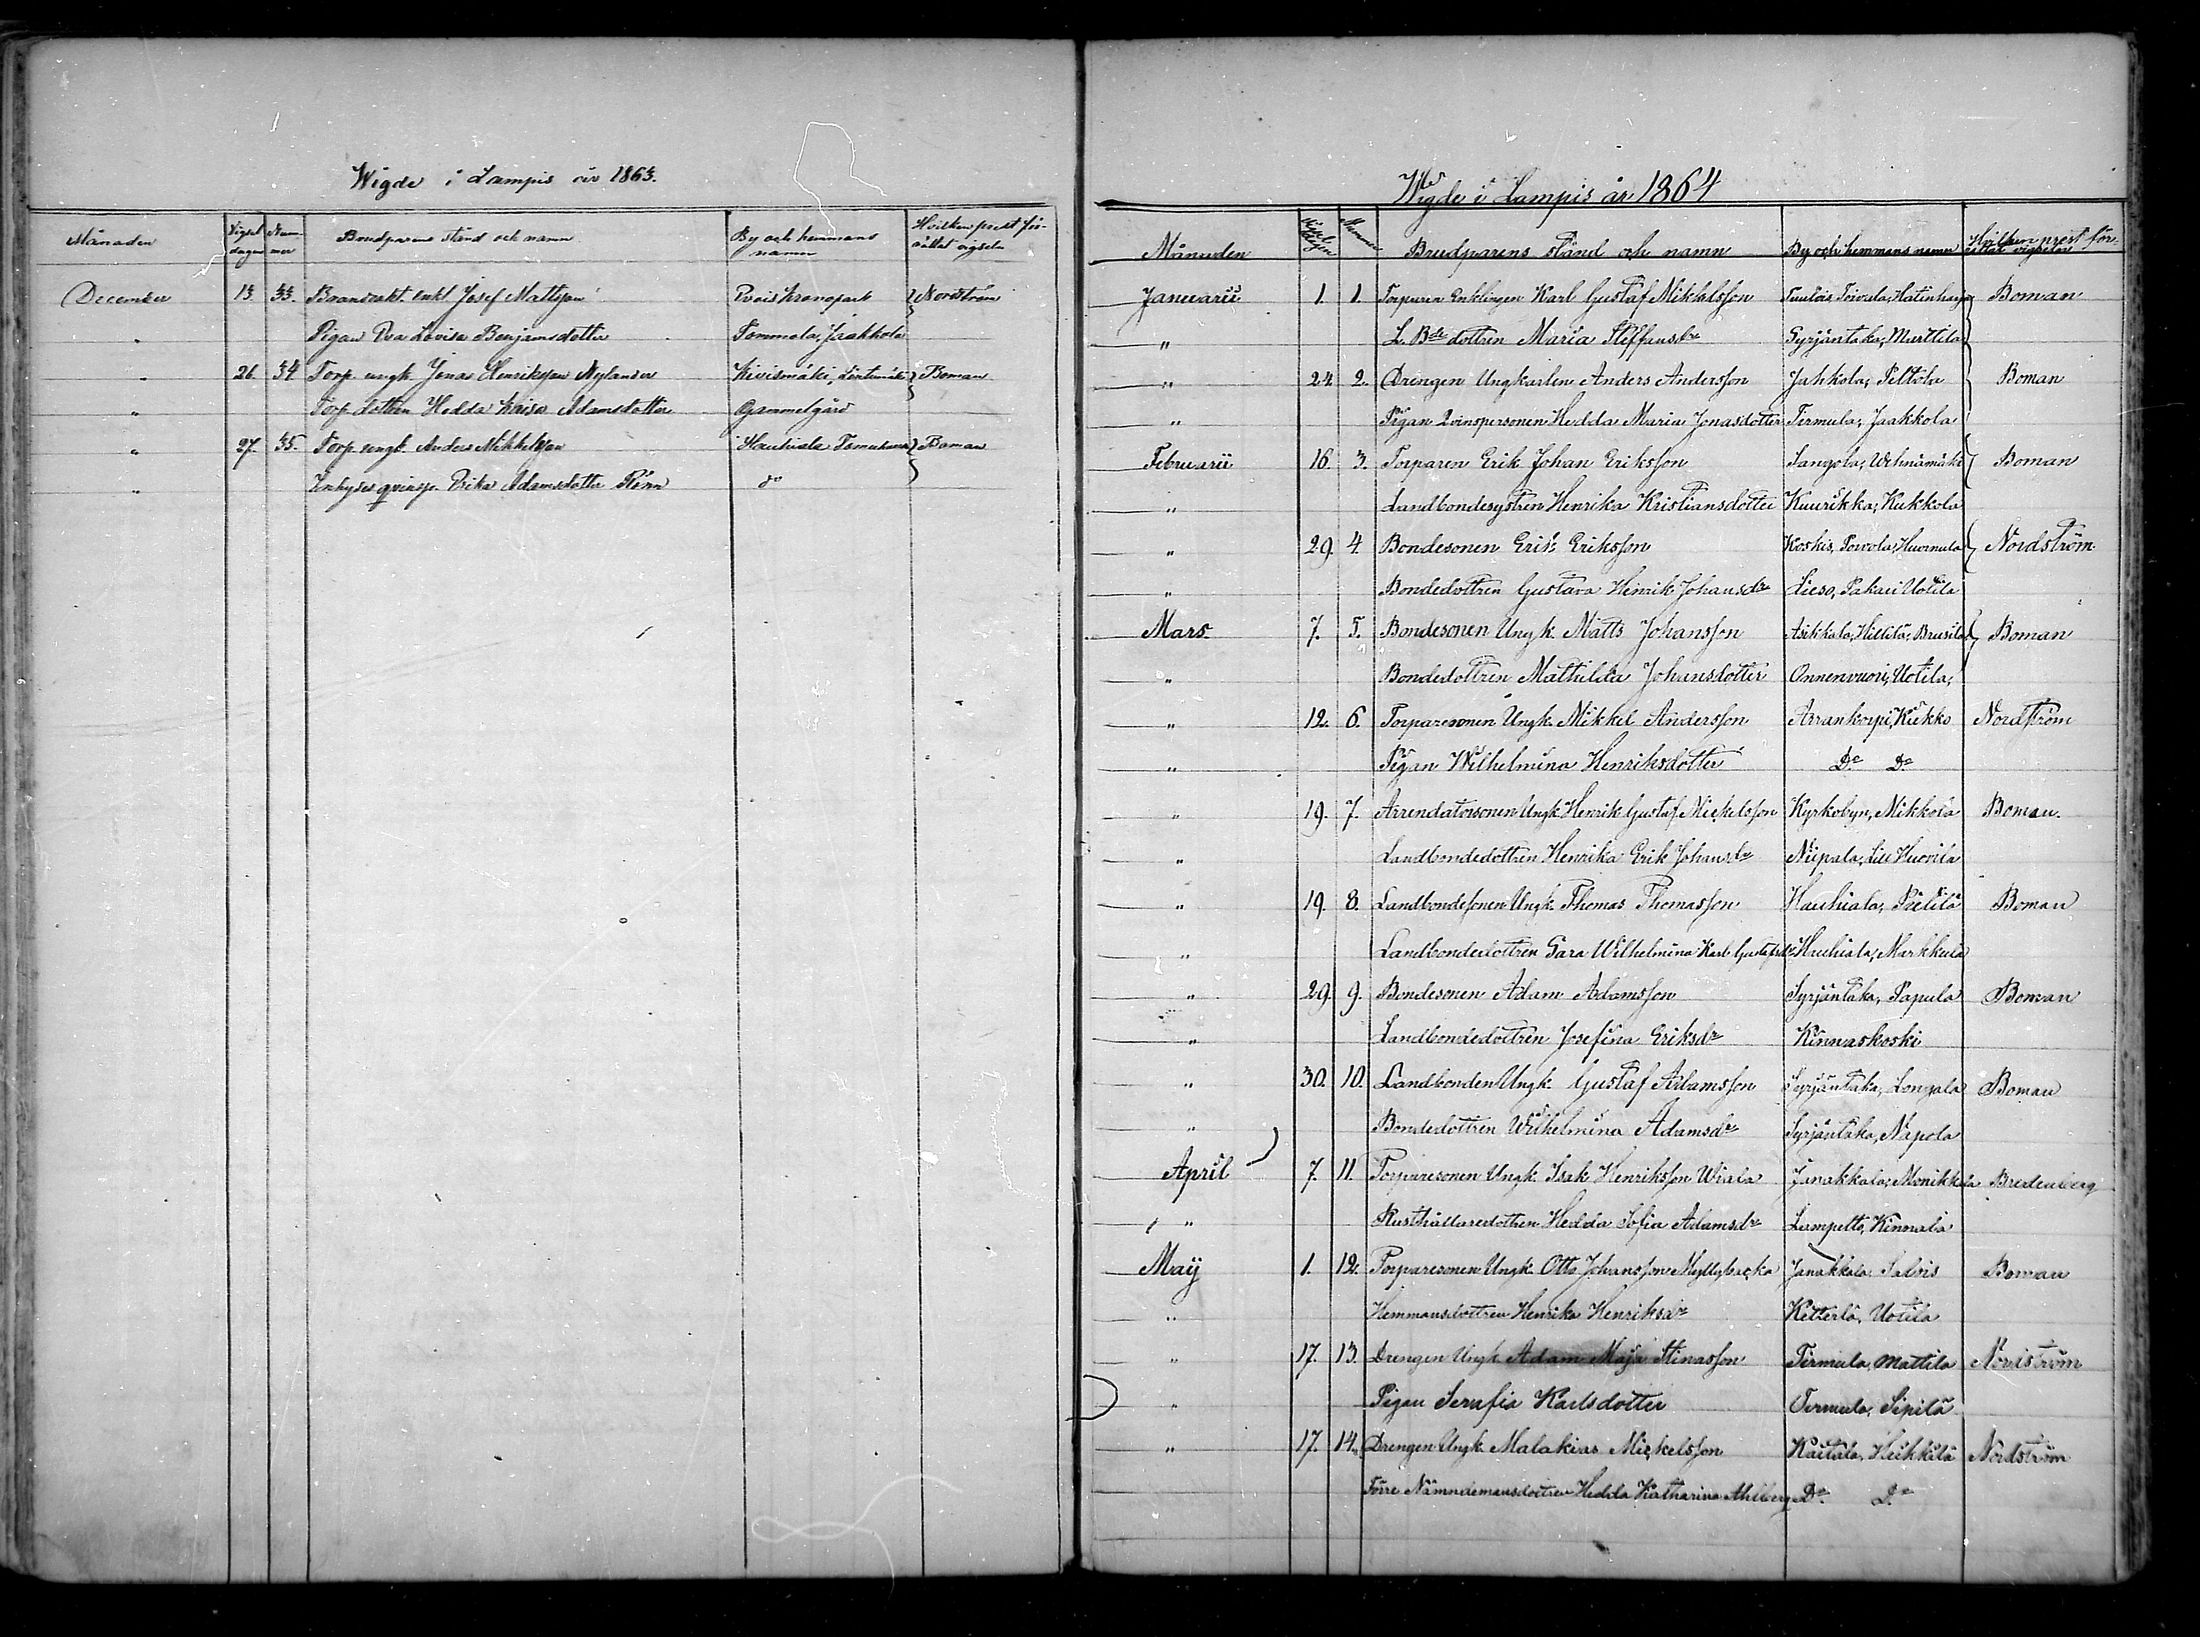 Wigde i Lampis år 1863.
Månaden Vigsel dagen Num-mer Brudparens stånd och namn By och hemmans namn Hvilken prest för-rättat vigseln
December 13. 33. enkl. Josef Mattsson Evois kronopark Nordström
" Pigan Eva Lovisa Benjamsdotter Tommola, Jaakkola
" 26. 34. Torp. ungk. Jonas Henriksson Nylander Kivismäki, Boman
" Torp. dottren Hedda Kaisa Adamsdotter Gammelgård
" 27. 35. Torp. ungk. Anders Mikkelsson Hauhiala Boman
" qvinsp. Erika Adamsdotter do
Wigde i Lampis år 1864
Månaden Vigsel dagen Nummer Brudparens stånd och namn By och hemmans namn Hvilken prest för-rättat vigseln
Januarii 1. 1. Torparen Enklingen Karl Gustaf Mikkelsson Tuulois, Toivula, Boman
" L. Bde dottren Maria Steffansdr Syrjäntaka, Marttila
" 24. 2. Drengen Ungkarlen Anders Andersson Jahkola, Peltola Boman
" Pigan Qvinspersonen Hedda Maria Jonasdotter Termula, Jaakkola
Februarii 16. 3. Torparen Erik Johan Eriksson Sangola, Wehnämäki Boman
" Landbondesystren Henrika Kristiansdotter Kuurikka, Kukkola
" 29. 4. Bondesonen Erik Eriksson Koskis, Porvola, Huvmula Nordström
" Bondedottren Gustava Henrik Johansdr Lieso, Pakari Uotila
Mars 7. 5. Bondesonen Ungk. Matts Johansson Asikkala, Hillilä, Brusila Boman
" Bondedottren Mathilda Johansdotter Onnenvuori, Uotila,
" 12. 6. Torparesonen Ungk. Mikkel Andersson Arrankorpi, Kiekko Nordström
" Pigan Wilhelmina Henriksdotter Do Do
" 19. 7. Arrendatorsonen Ungk. Henrik Gustaf Mickelsson Kyrkobyn, Mikkola Boman.
" Landbondedottren Henrika Erik Johansdr Niipala, Lill Huovila
" 19. 8. Landbondesonen Ungk. Thomas Thomasson Hauhiala, Pielilä Boman
" Landbondedottren Sara Wilhelmina Karl Gustafsdr Hauhiala, Markkula
" 29. 9. Bondesonen Adam Adamsson Syrjäntaka, Papula Boman
" Landbondedottren Josefina Eriksdr Kinnaskoski
" 30. 10. Landbonden Ungk. Gustaf Adamsson Syrjäntaka, Longala Boman
" Bondedottren Wilhelmina Adamsdr Syrjäntaka, Napola
April 7. 11. Torparesonen Ungk. Isak Henriksson Wiala Janakkala, Monikkala Bredenberg
" Rusthållaredottren Hedda Sofia Adamsdr Lampetto, Kinnala
Maij 1. 12. Torparesonen Ungk. Otto Johansson Myllybacka Janakkala Salois Boman
" Hemmansdottren Henrika Henriksdr Ketterlä, Uotila
" 17. 13. Drengen Ungk. Adam Maja Stinasson Termula, Mattila Nordström
" Pigan Serafia Karlsdotter Termula, Sipilä
" 17. 14. Drengen Ungk. Malakias Mickelsson Kaitala, Heikkilä Nordström
Förre Nämndemansdottren Hedda Katharina Ahlberg Do Do